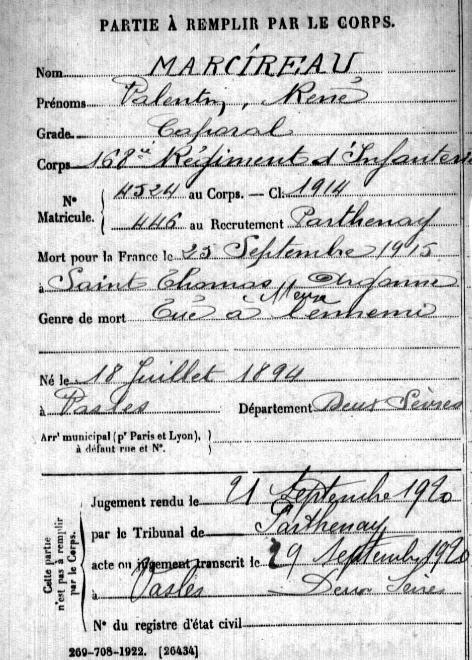 PARTIE À REMPLIR PAR LE CORPS.
Nom MARCIREAU
Prénoms Valentin, René
Grade Caporal
Corps 168me Régiment d'Infanterie
N° Matricule. 4524 au Corps. — Cl. 1914
446 au Recrutement Parthenay
Mort pour la France le 25 Septembre 1915
à Saint Thomas Argonne
Genre de mort Tué à l'ennemi
Né le 18 Juillet 1894
à Vasles Département Deux Sèvres
Arrt municipal (pr Paris et Lyon), à défaut rue et N°.
Cette partie n'est pas à remplir par le Corps.
Jugement rendu le 21 Septembre 1920
par le Tribunal de Parthenay
acte ou jugement transcrit le 29 Septembre 1920
à Vasles Deux Sèvres
N° du registre d'état civil
269-708-1922. [26434]